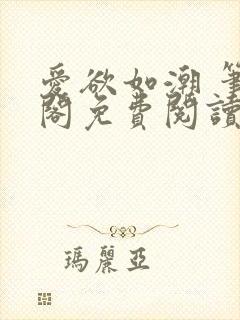 愛欲如潮 筆
閣免費閱讀
瑪麗亞